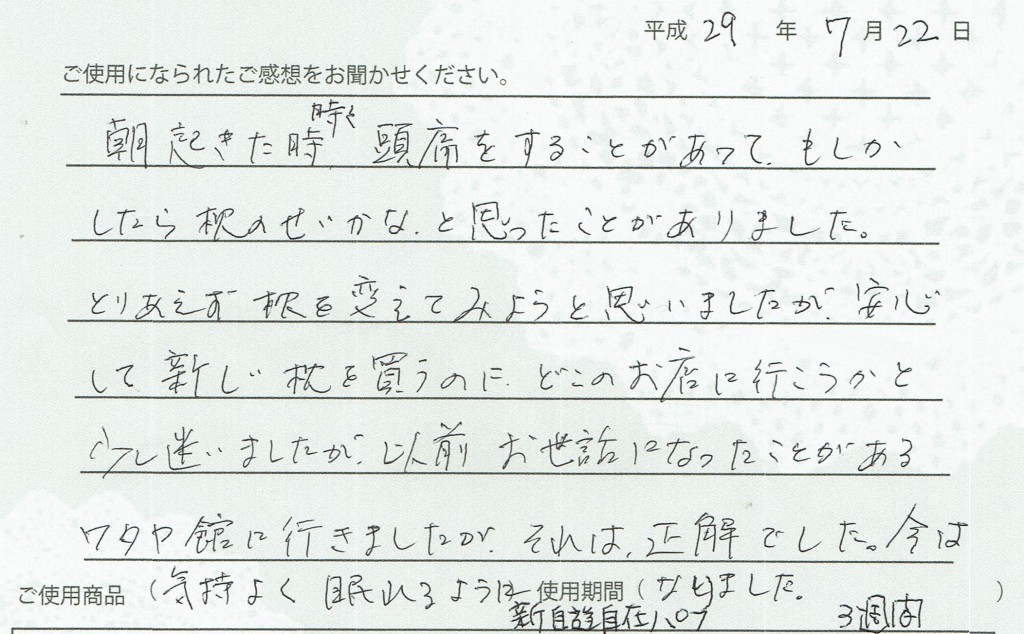 平成 29 年 7 月 22 日
ご使用になられたご感想をお聞かせください。
時々
朝起きた時、頭痛をすることがあって、もしか
したら枕のせいかな、と思ったことがありました。
とりあえず枕を変えてみようと思いましたが、安心
して、新しい枕を買うのに、どこのお店に行こうかと
少し迷いましたが、以前お世話になったことがある
ワタヤ館に行きましたが、それは、正解でした。今は
ご使用商品（気持よく眠れるように 使用期間（なりました。）
自在 3週間